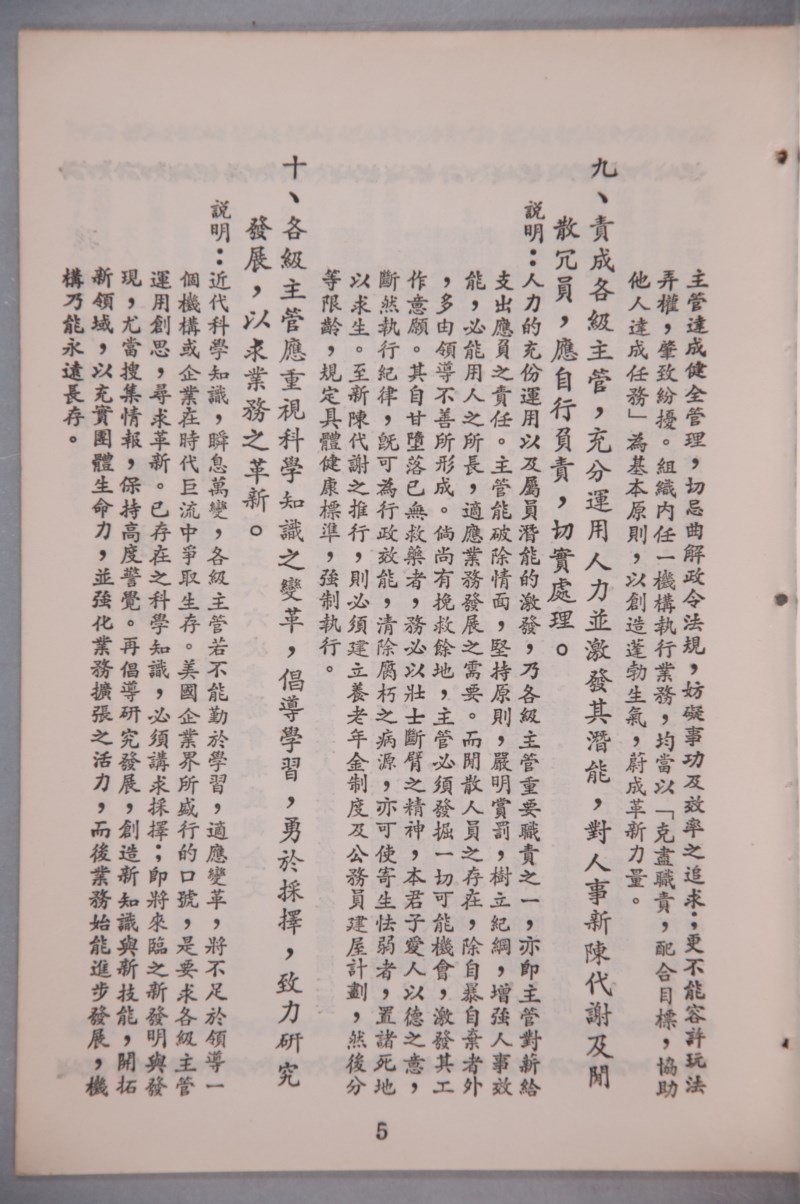 主管達成健全管理，切忌曲解政令法規，妨礙事功及效率之追求；更不能容許玩法
弄權，肇致紛擾。組織内任一機構執行業務，均當以「克盡職責，配合目標，協助
他人達成任務」為基本原則，以創造蓬勃生氣，蔚成革新力量。
九、責成各級主管，充分運用人力並激發其潛能，對人事新陳代謝及閒
散冗員，應自行負責，切實處理。
說明：人力的充份運用以及屬員潛能的激發，乃各級主管重要職責之一，亦即主管對薪給
支出應負之責任。主管能破除情面，堅持原則，嚴明賞罰，樹立紀綱，增強人事效
能，必能用人之所長，適應業務發展之需要。而閒散人員之存在，除自暴自棄者外
，多由領導不善所形成。倘尚有挽救餘地，主管必須發掘一切可能機會，激發其工
作意願。其自甘墮落已無救藥者，務必以壯士斷臂之精神，本君子愛人以德之意，
斷然執行紀律，旣可為行政效能，清除腐朽之病源，亦可使寄生怯弱者，置諸死地
以求生。至新陳代謝之推行，則必須建立養老年金制度及公務員建屋計劃，然後分
等限齡，規定具體健康標準，強制執行。
十、各級主管應重視科學知識之變革，倡導學習，勇於採擇，致力研究
發展，以求業務之革新。
說明：近代科學知識，瞬息萬變，各級主管若不能勤於學習，適應變革，將不足於領導一
個機構或企業在時代巨流中爭取生存。美國企業界所盛行的口號，是要求各級主管
運用創思，尋求革新。已存在之科學知識，必須講求採擇；即將來臨之新發明與發
現，尤當搜集情報，保持高度警覺。再倡導研究發展，創造新知識與新技能，開拓
新領域，以充實團體生命力，並強化業務擴張之活力，而後業務始能進步發展，機
構乃能永遠長存。
5